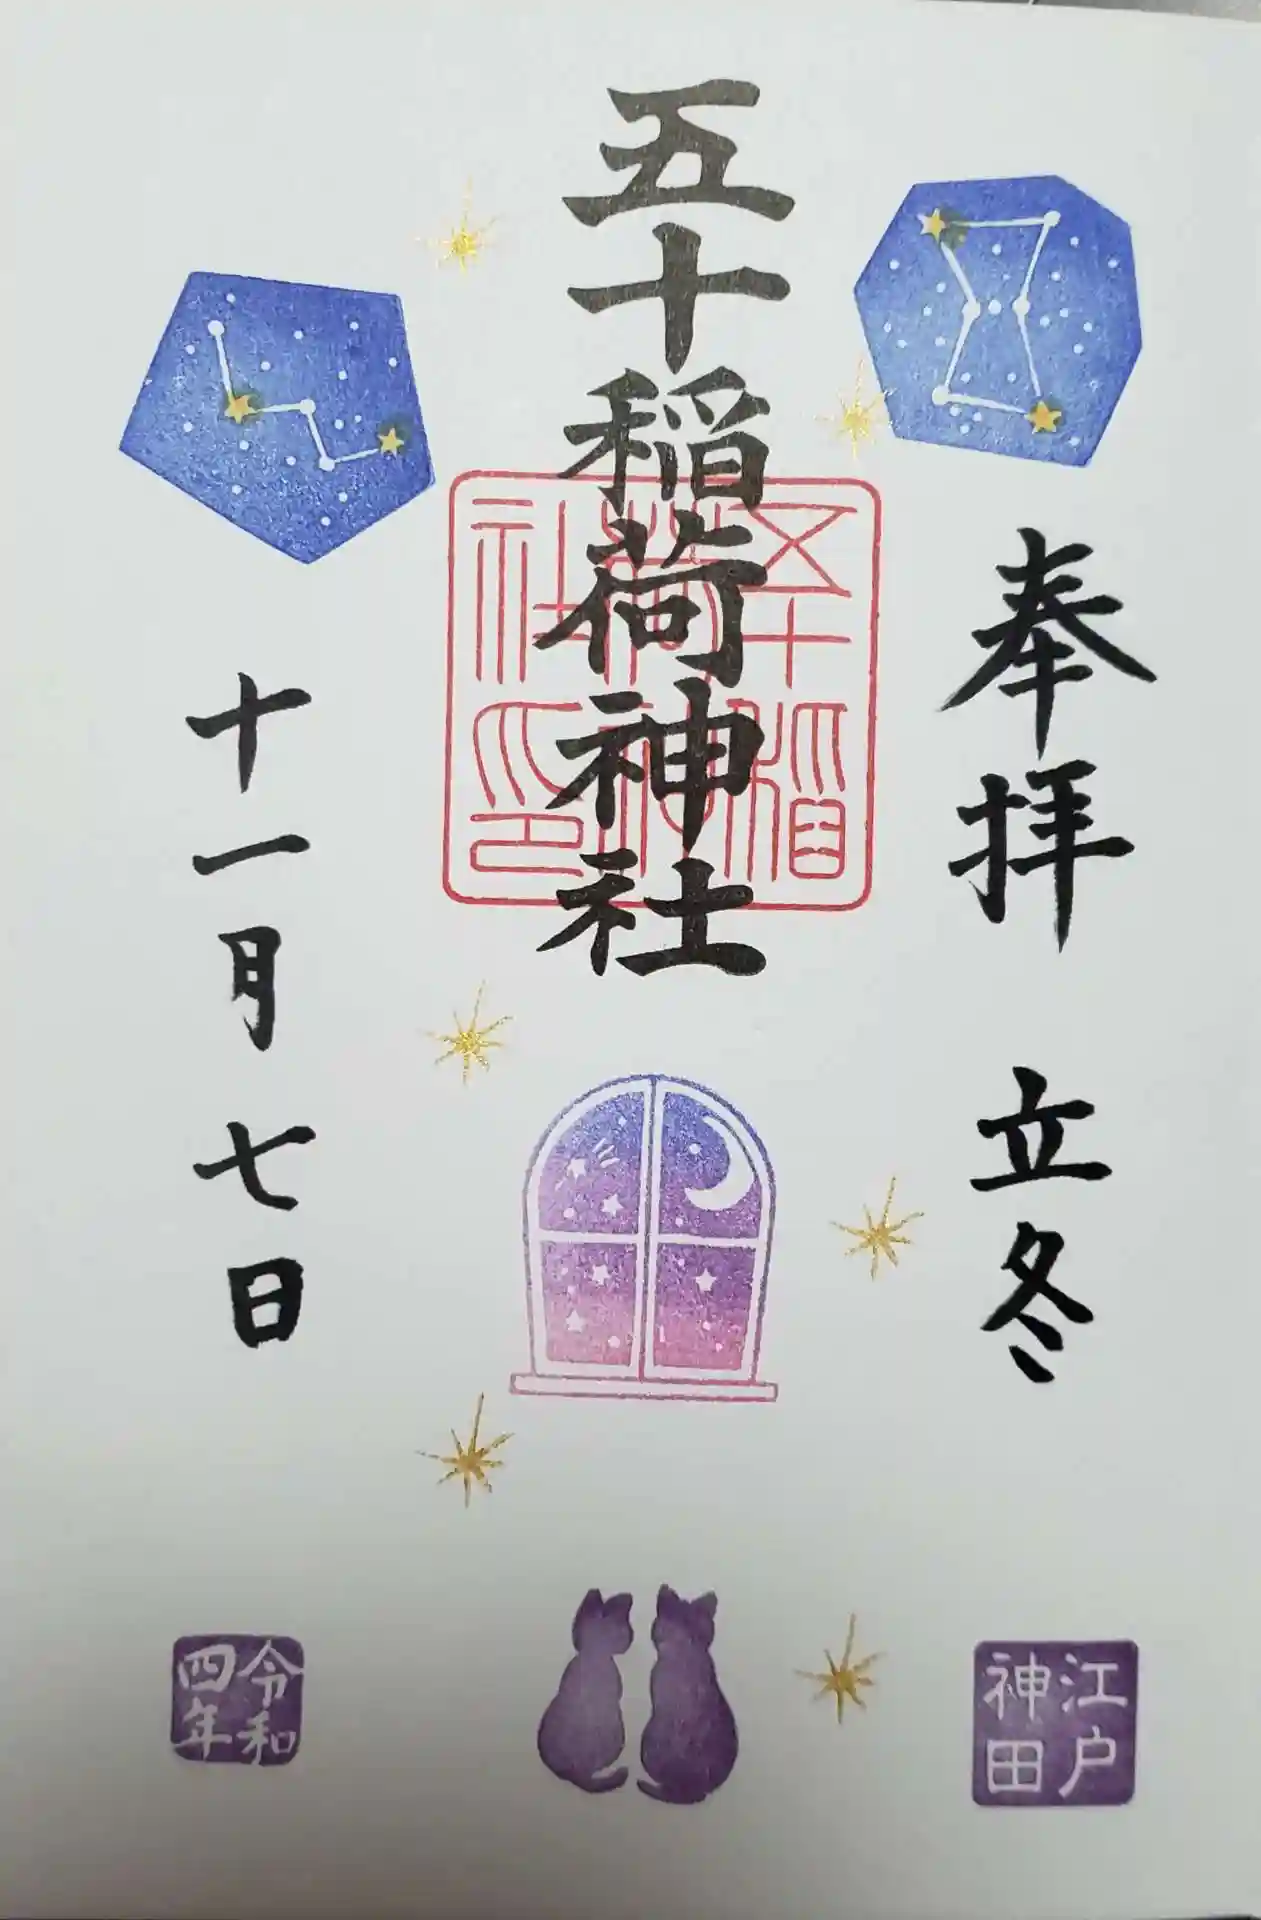 奉拝 立冬
江戸神田
五十稲荷神社
五十稲荷神社印
十一月七日
令和四年